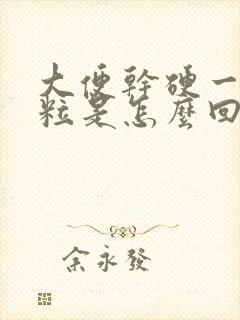 大便幹硬一
粒是怎麼回
余永發